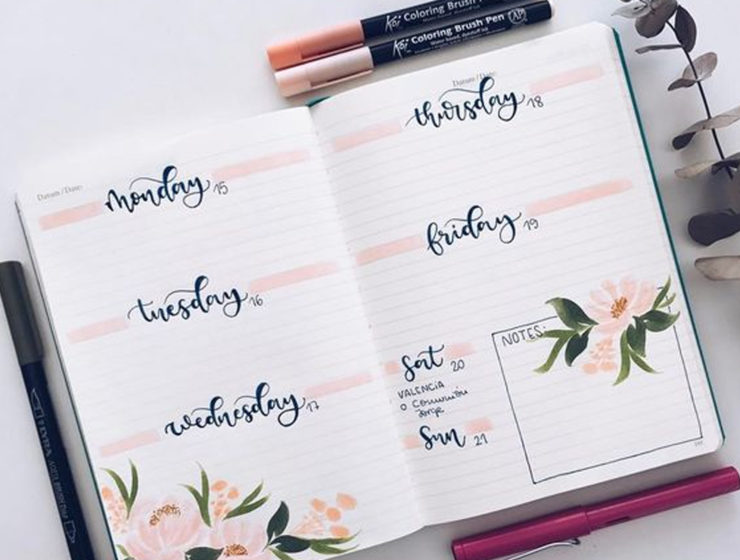 Koi Coloring Brush Pen
Koi Coloring Brush Pen AP
Datum / Date:
monday 15
tuesday 16
wednesday 17
Datum / Date:
thursday 18
friday 19
sat 20
VALENCIA
o Comunión
Jorge
sun 21
NOTES: